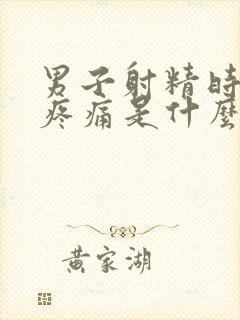 男子射精時
疼痛是什麼
黄家湖